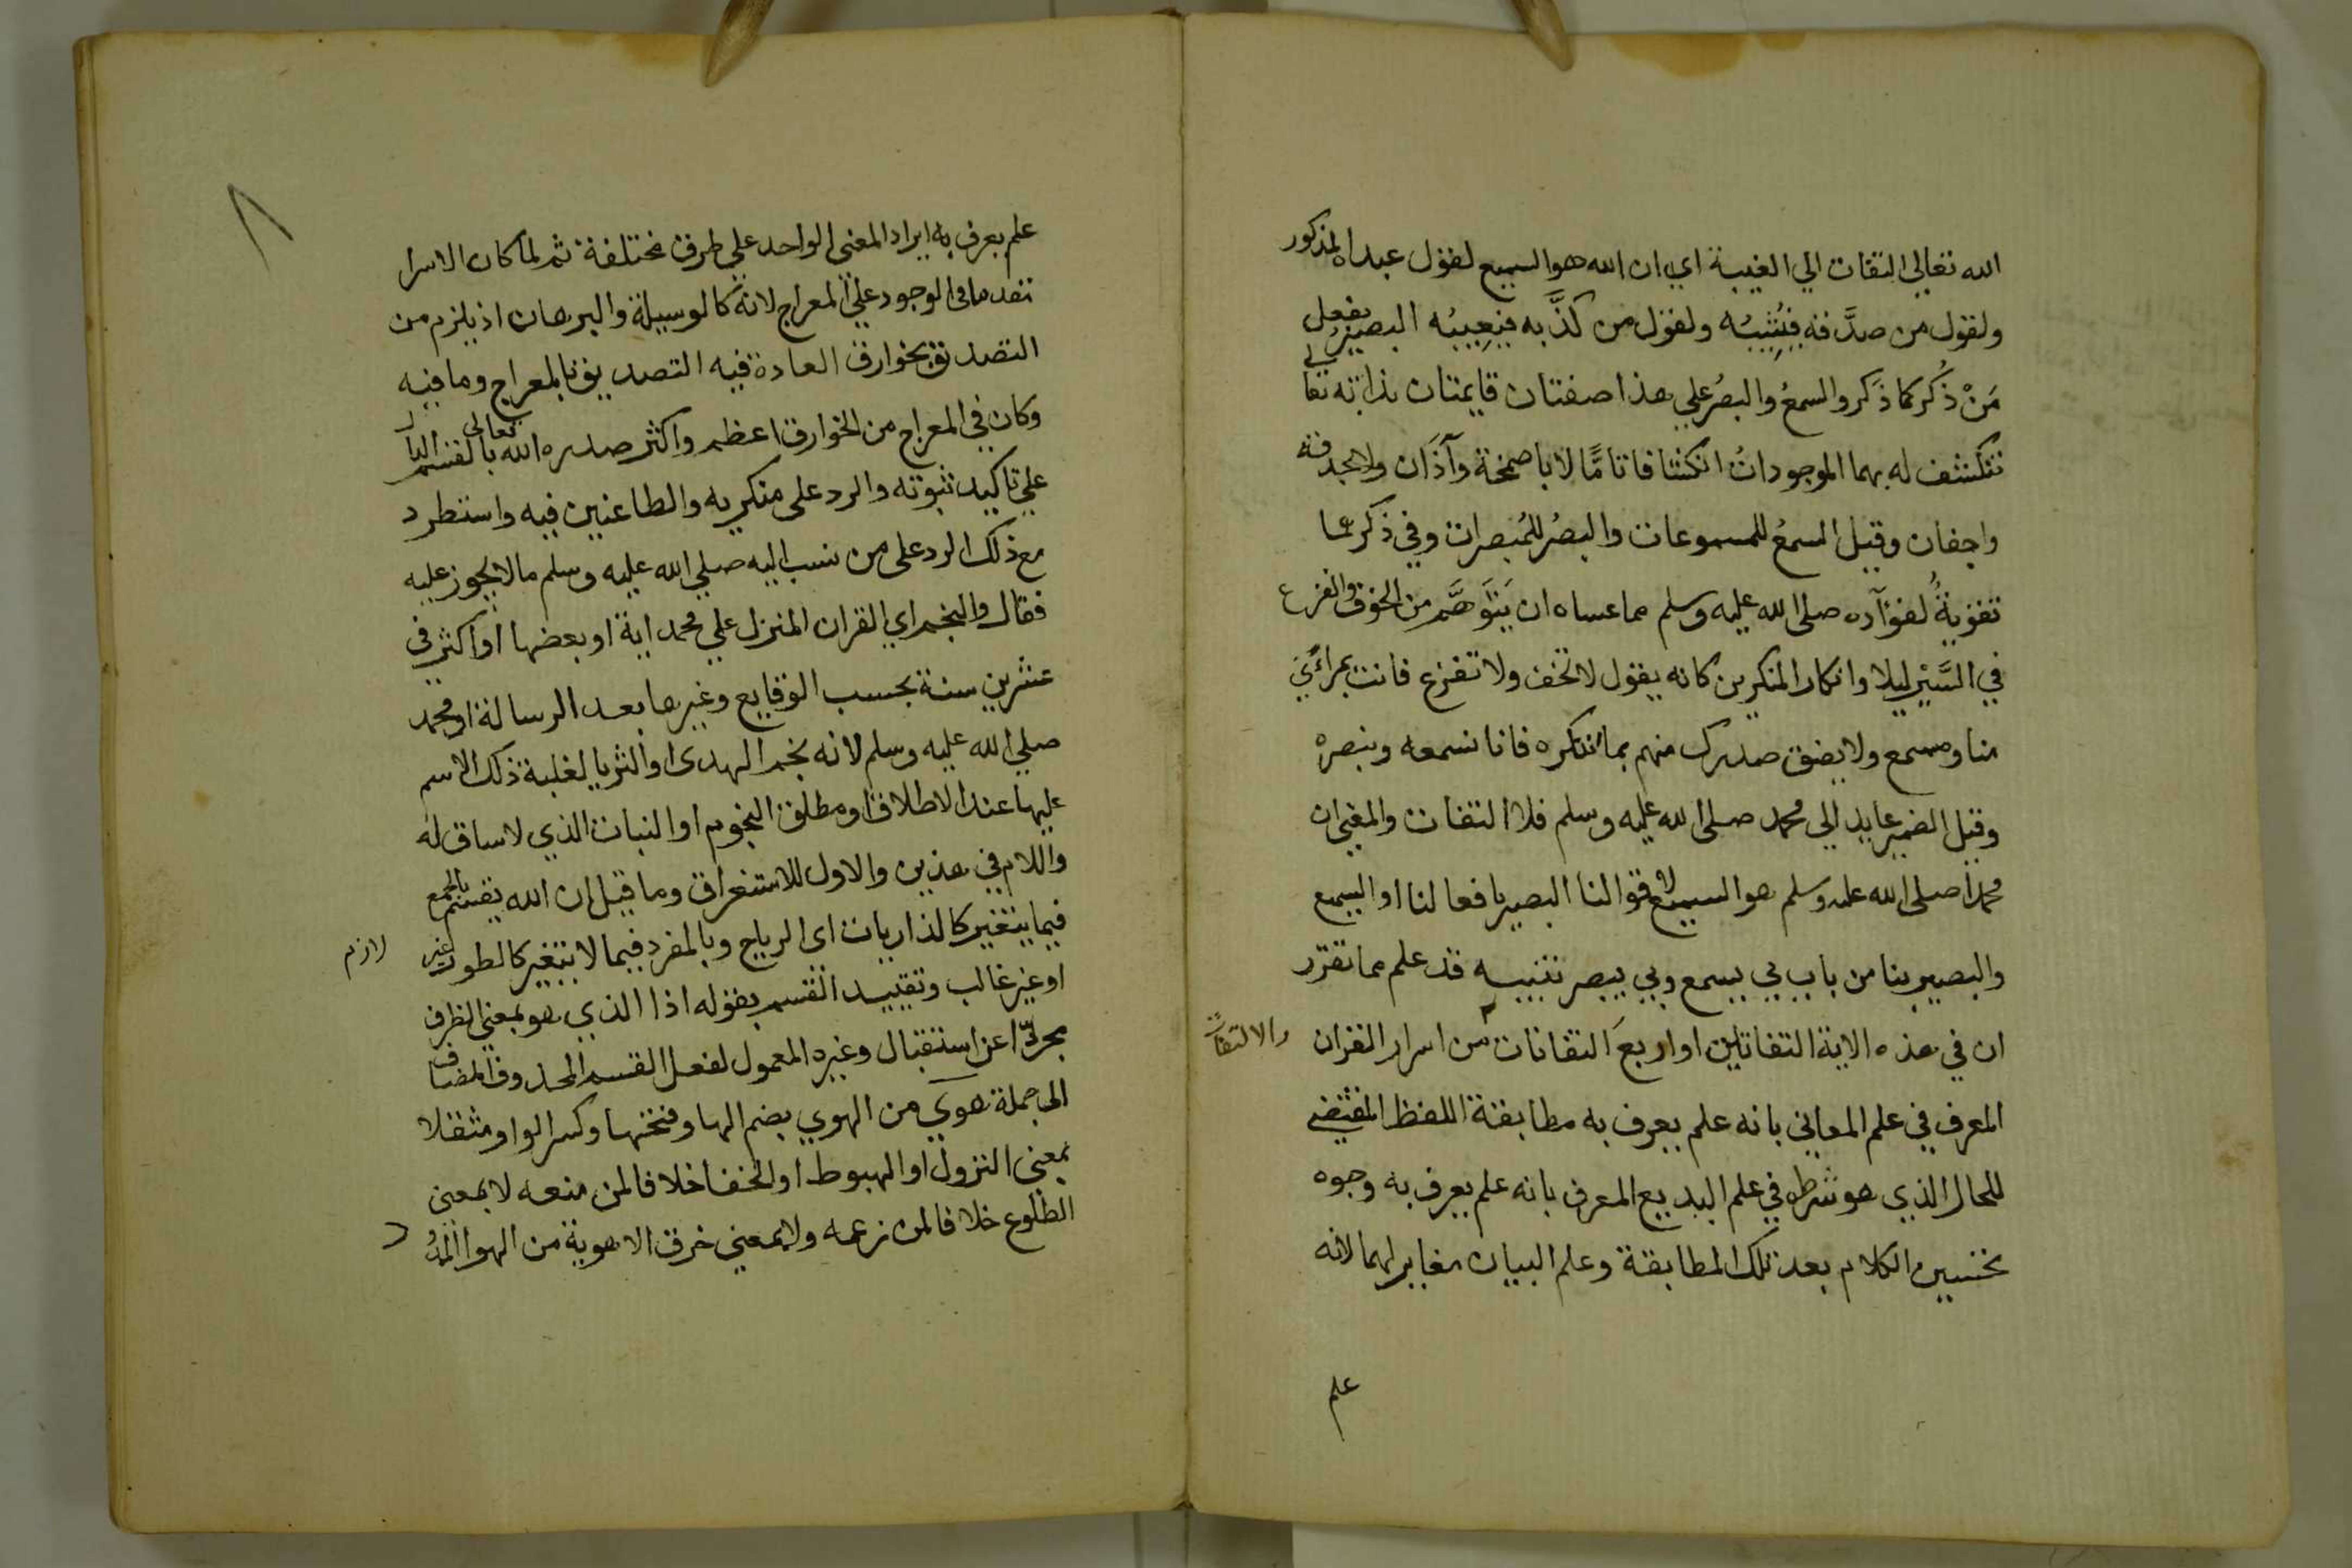 الله تعالى التفات الي الغيبة اي ان الله هو السميع لقول عبده المذكور
ولقول من صدَّقه فيُثِيبُه ولقول من كذَّبه فيُعِيبُه البصير بفعل
مَنْ ذُكر كما ذَكر والسمعُ والبصرُ علي هذا صفتان قايمتان بذاته تعالي
تنكشف له بهما الموجوداتُ انكشافا تامًّا لا باصمخة وآذان ولا بحدقة
واجفان وقيل السمعُ للمسموعات والبصرُ للمُبصرات وفي ذكرهما
تقويةٌ لفؤآده صلى الله عليه وسلم مما عساه ان يَتَوهَّم من الخوف والفزع
في السَّيْر ليلا وانكار المنكرين كانه يقول لا تخف ولا تفزع فانت بمرائي
منا ومسمع ولا يضق صدرك منهم بما تنكره فانا نسمعه ونبصره
وقيل الضمير عايد الي محمد صلى الله عليه وسلم فلا التفات والمعني ان
محمدا صلى الله عليه وسلم هو السميع لاقوالنا البصير بافعالنا او السميع
والبصير بنا من باب بي يسمع وبي يبصر تنبيه قد علم مما تقرر
ان في هذه الاية التفاتين او اربعَ التفاتات من اسرار القران
والالتفات
المعرف في علم المعاني بانه علم يعرف به مطابقة اللفظ المقتضي
للحال الذي هو شرط في علم البديع المعرف بانه علم يعرف به وجوه
تحسين الكلام بعد تلك المطابقة وعلم البيان مغاير لهما لانه
علم
٨
علم يعرف به ايراد المعني الواحد علي طرق مختلفة ثم لما كان الاسرا
تقدما في الوجود علي المعراج لانه كالوسيلة والبرهان اذ يلزم من
التصديق بخوارق العادة فيه التصديق بالمعراج وما فيه
وكان في المعراج من الخوارق اعظم واكثر صدره الله تعالى بالقسم الدال
علي تاكيد ثبوته والرد على منكريه والطاعنين فيه واستطرد
مع ذلك الرد على من نسب اليه صلي الله عليه وسلم ما لا يجوز عليه
فقال والنجم اي القران المنزل علي محمد اية او بعضها او اكثر في
عشرين سنة بحسب الوقايع وغيرها بعد الرسالة او محمد
صلي الله عليه وسلم لانه نجم الهدى او الثريا لغلبة ذلك الاسم
عليها عند الاطلاق او مطلق النجوم او النبات الذي لا ساق له
واللام في هذين والاول للاستغراق وما قيل ان الله يقسم بالجمع
فيما يتغير كالذاريات اى الرياح وبالمفرد فيما لا يتغير كالطور غير لازم
او غير غالب وتقييد القسم بقوله اذا الذي هو بمعني الظرف
مجردا عن استقبال وغيره المعمول لفعل القسم المحذوف المضاف
الى جملة هوي من الهوي بضم الها وفتحها وكسر الواو مثقلا
بمعني النزول او الهبوط او الخفا خلافا لمن منعه لا بمعني
الطلوع خلافا لمن زعمه ولا بمعني خرق الاهوية من الهوا